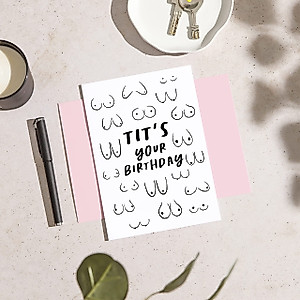 TIT'S
YOUR
BIRTHDAY